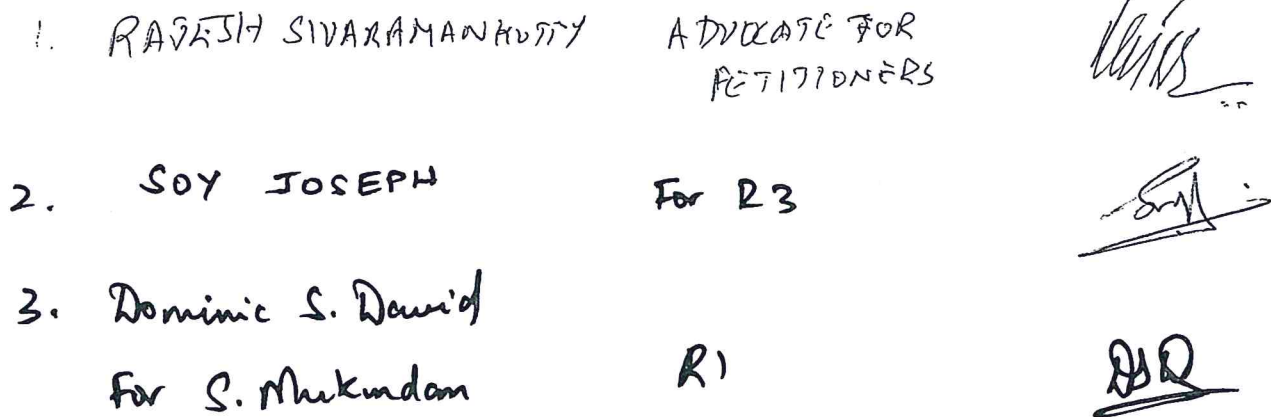 1. RAJESH SIVARAMANKUTTY ADVOCATE FOR
PETITIONERS
2. SOY JOSEPH For R3
3. Dominic S. David
For S. Mukundam R1
DSD